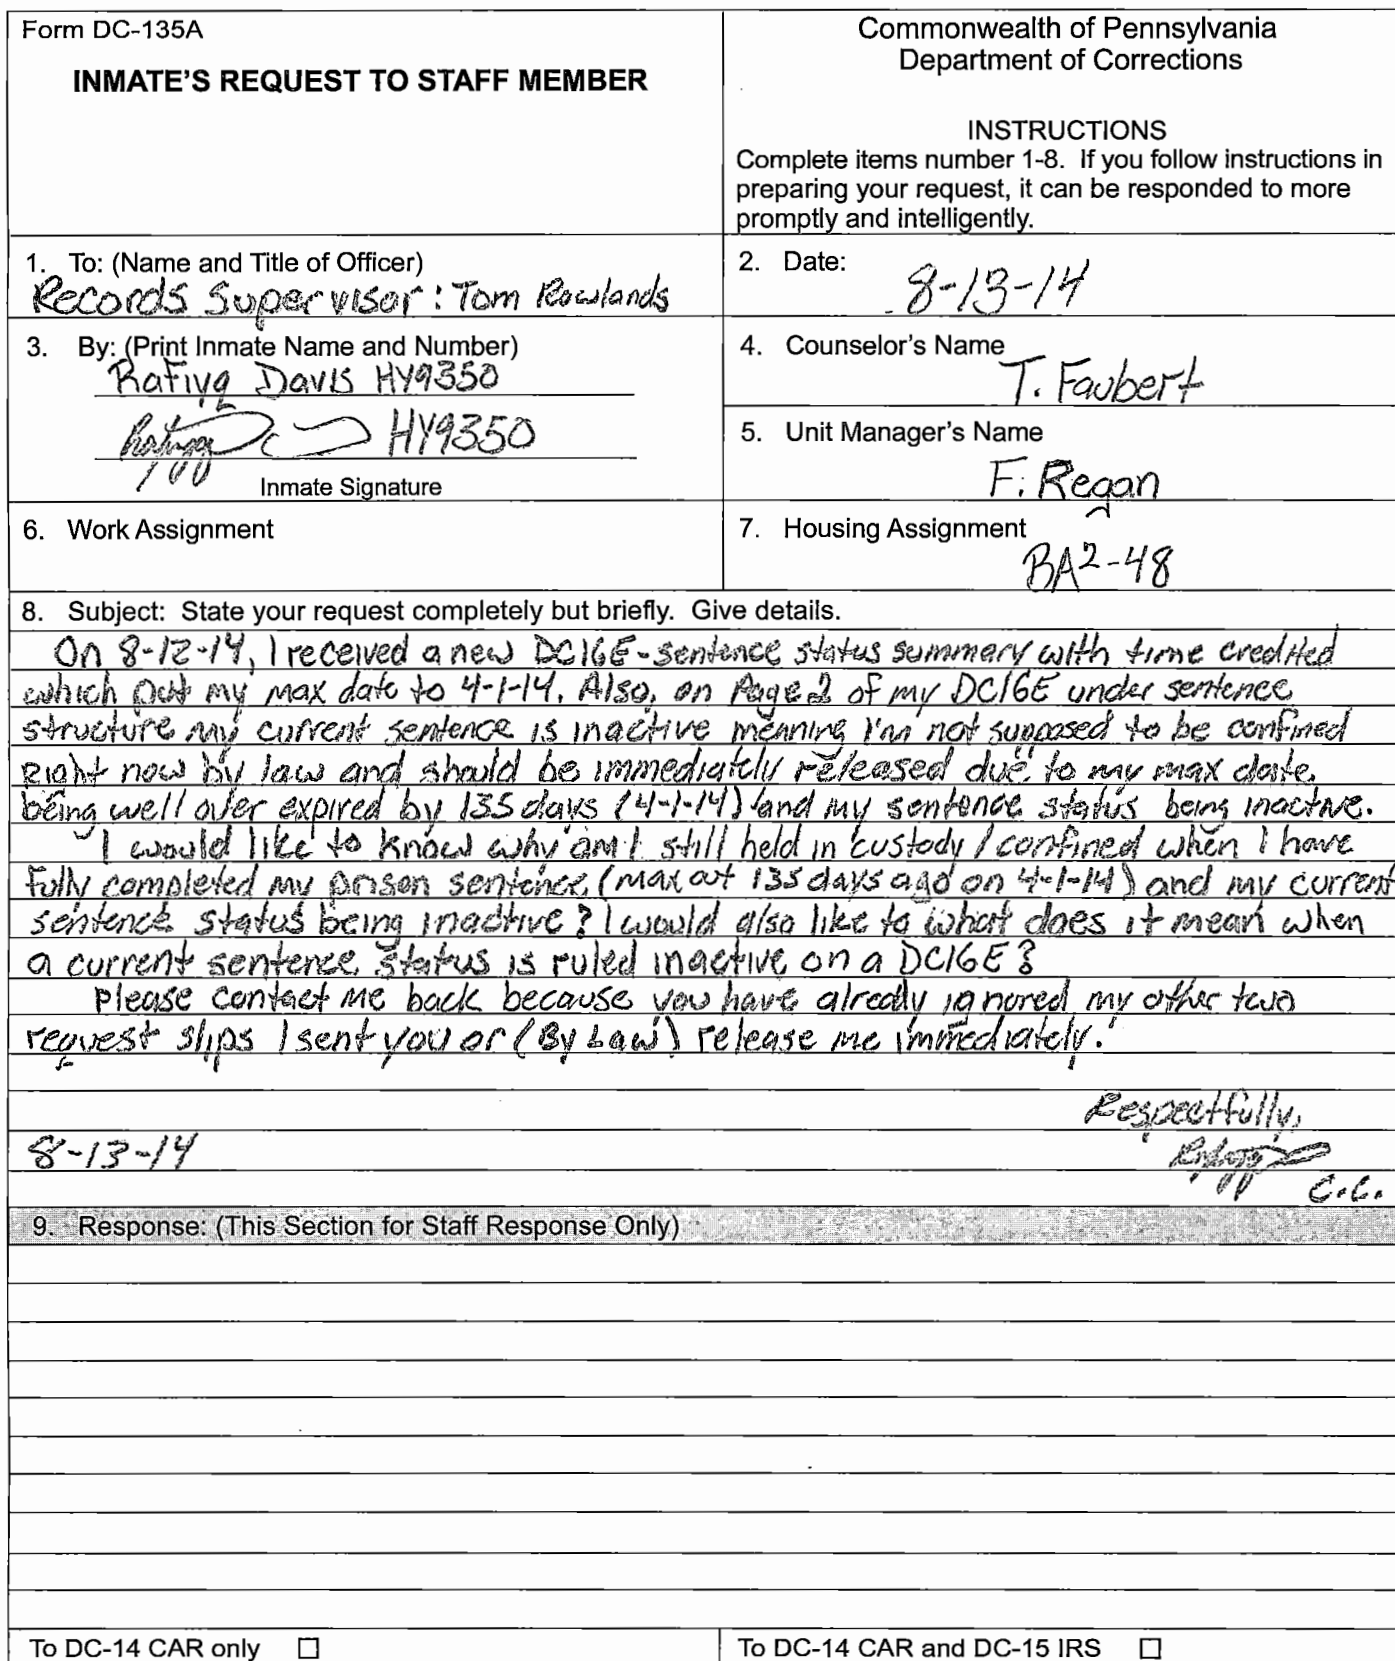 Form DC-135A
INMATE'S REQUEST TO STAFF MEMBER
Commonwealth of Pennsylvania
Department of Corrections
INSTRUCTIONS
Complete items number 1-8. If you follow instructions in
preparing your request, it can be responded to more
promptly and intelligently.
1. To: (Name and Title of Officer)
Records Supervisor: Tom Rowlands
2. Date:
8-13-14
3. By: (Print Inmate Name and Number)
Rafiyq Davis HY9350
HY9350
Inmate Signature
4. Counselor's Name
T. Faubert
5. Unit Manager's Name
F. Regan
6. Work Assignment
7. Housing Assignment
BA2-48
8. Subject: State your request completely but briefly. Give details.
On 8-12-14, I received a new DC16E-sentence status summary with time credited
which put my max date to 4-1-14. Also, on Page 2 of my DC16E under sentence
structure my current sentence is inactive meaning I'm not supposed to be confined
right now by law and should be immediately released due to my max date
being well over expired by 135 days (4-1-14) and my sentence status being inactive.
I would like to know why am I still held in custody/confined when I have
fully completed my prison sentence (max out 135 days ago on 4-1-14) and my current
sentence status being inactive? I would also like to what does it mean when
a current sentence status is ruled inactive on a DC16E?
Please contact me back because you have already ignored my other two
request slips I sent you or (By Law) release me immediately!
Respectfully,
8-13-14
C.C.
9. Response: (This Section for Staff Response Only)
To DC-14 CAR only ☐
To DC-14 CAR and DC-15 IRS ☐